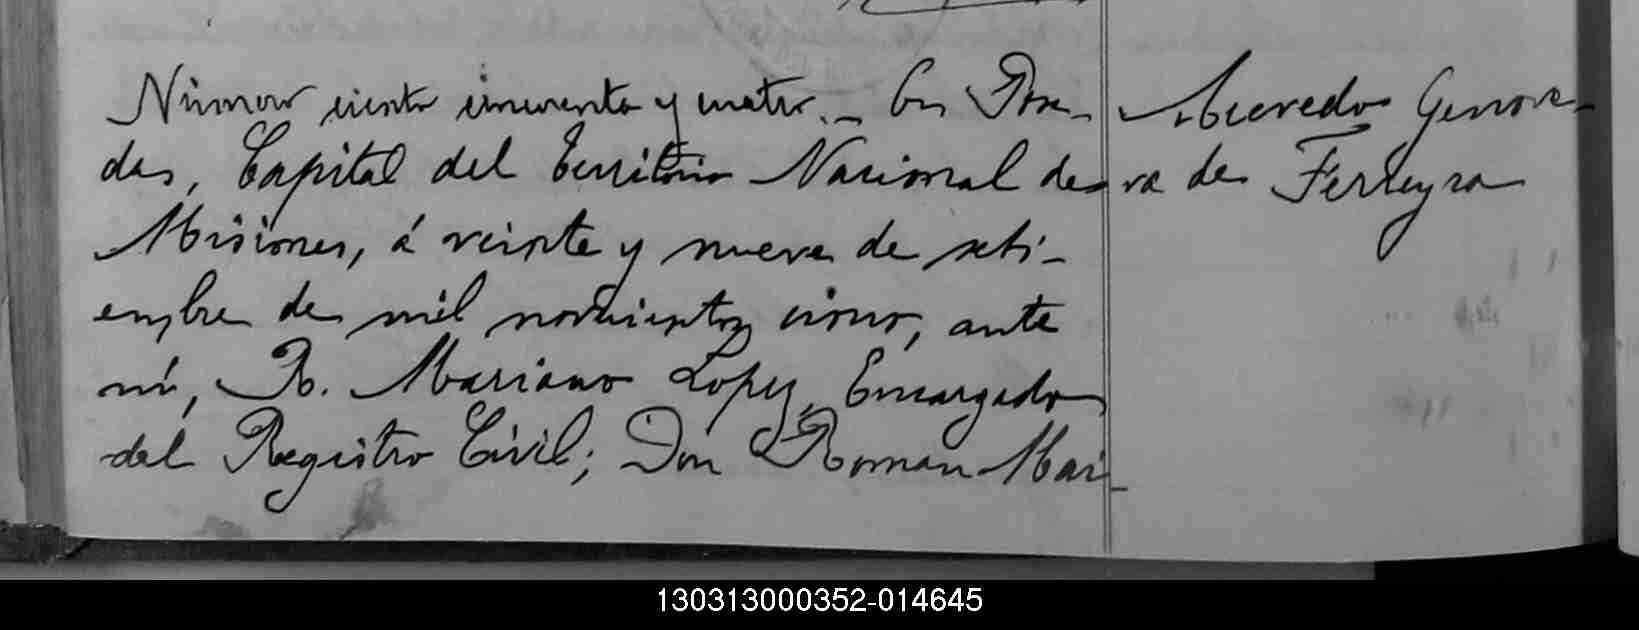 Número ciento cincuenta y cuatro._ En Posa-
das, Capital del Territorio Nacional de
Misiones, á veinte y nueve de seti-
embre de mil novecientos cinco, ante
mí, R. Mariano Lopez, Encargado
del Registro Civil; Don Roman Mar-
Acevedo Genove-
va de Ferreyra
130313000352-014645